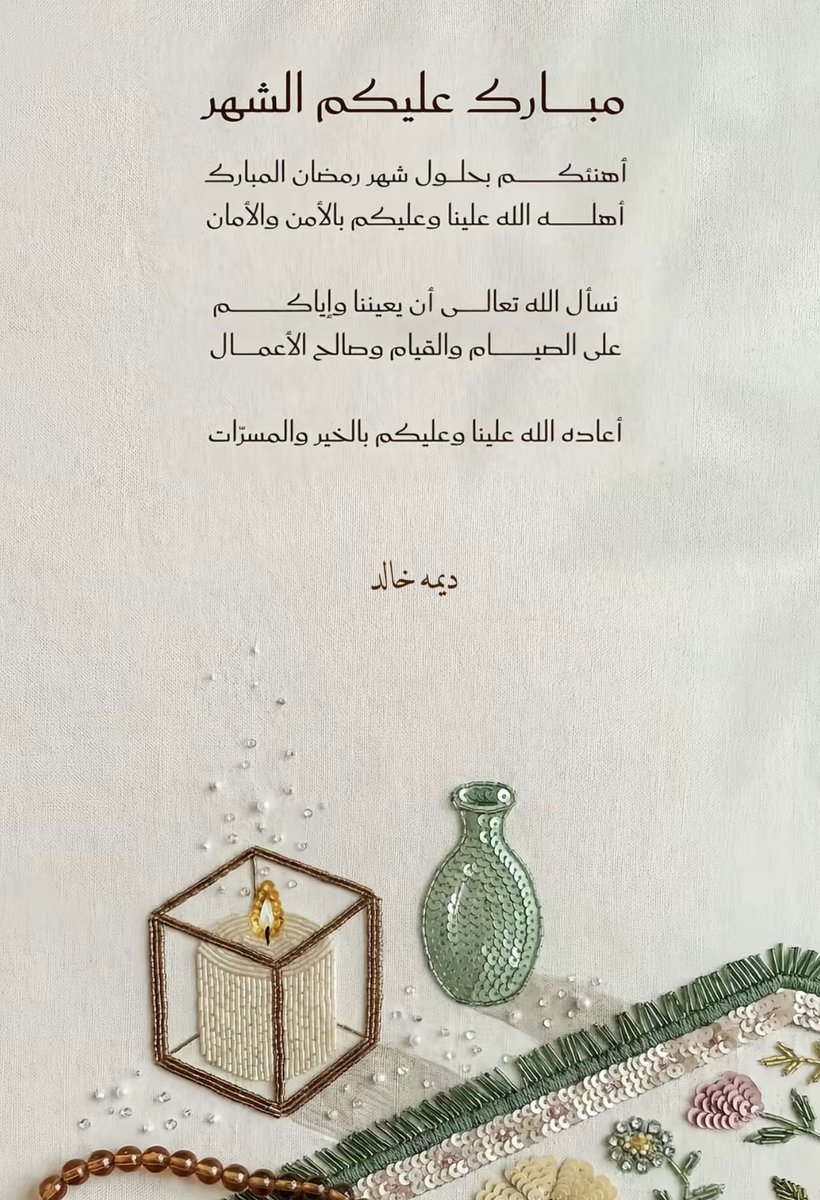 مبارك عليكم الشهر
أهنئكم بحلول شهر رمضان المبارك
أهله الله علينا وعليكم بالأمن والأمان
نسأل الله تعالى أن يعيننا وإياكم
على الصيام والقيام وصالح الأعمال
أعاده الله علينا وعليكم بالخير والمسرّات
ديمه خالد